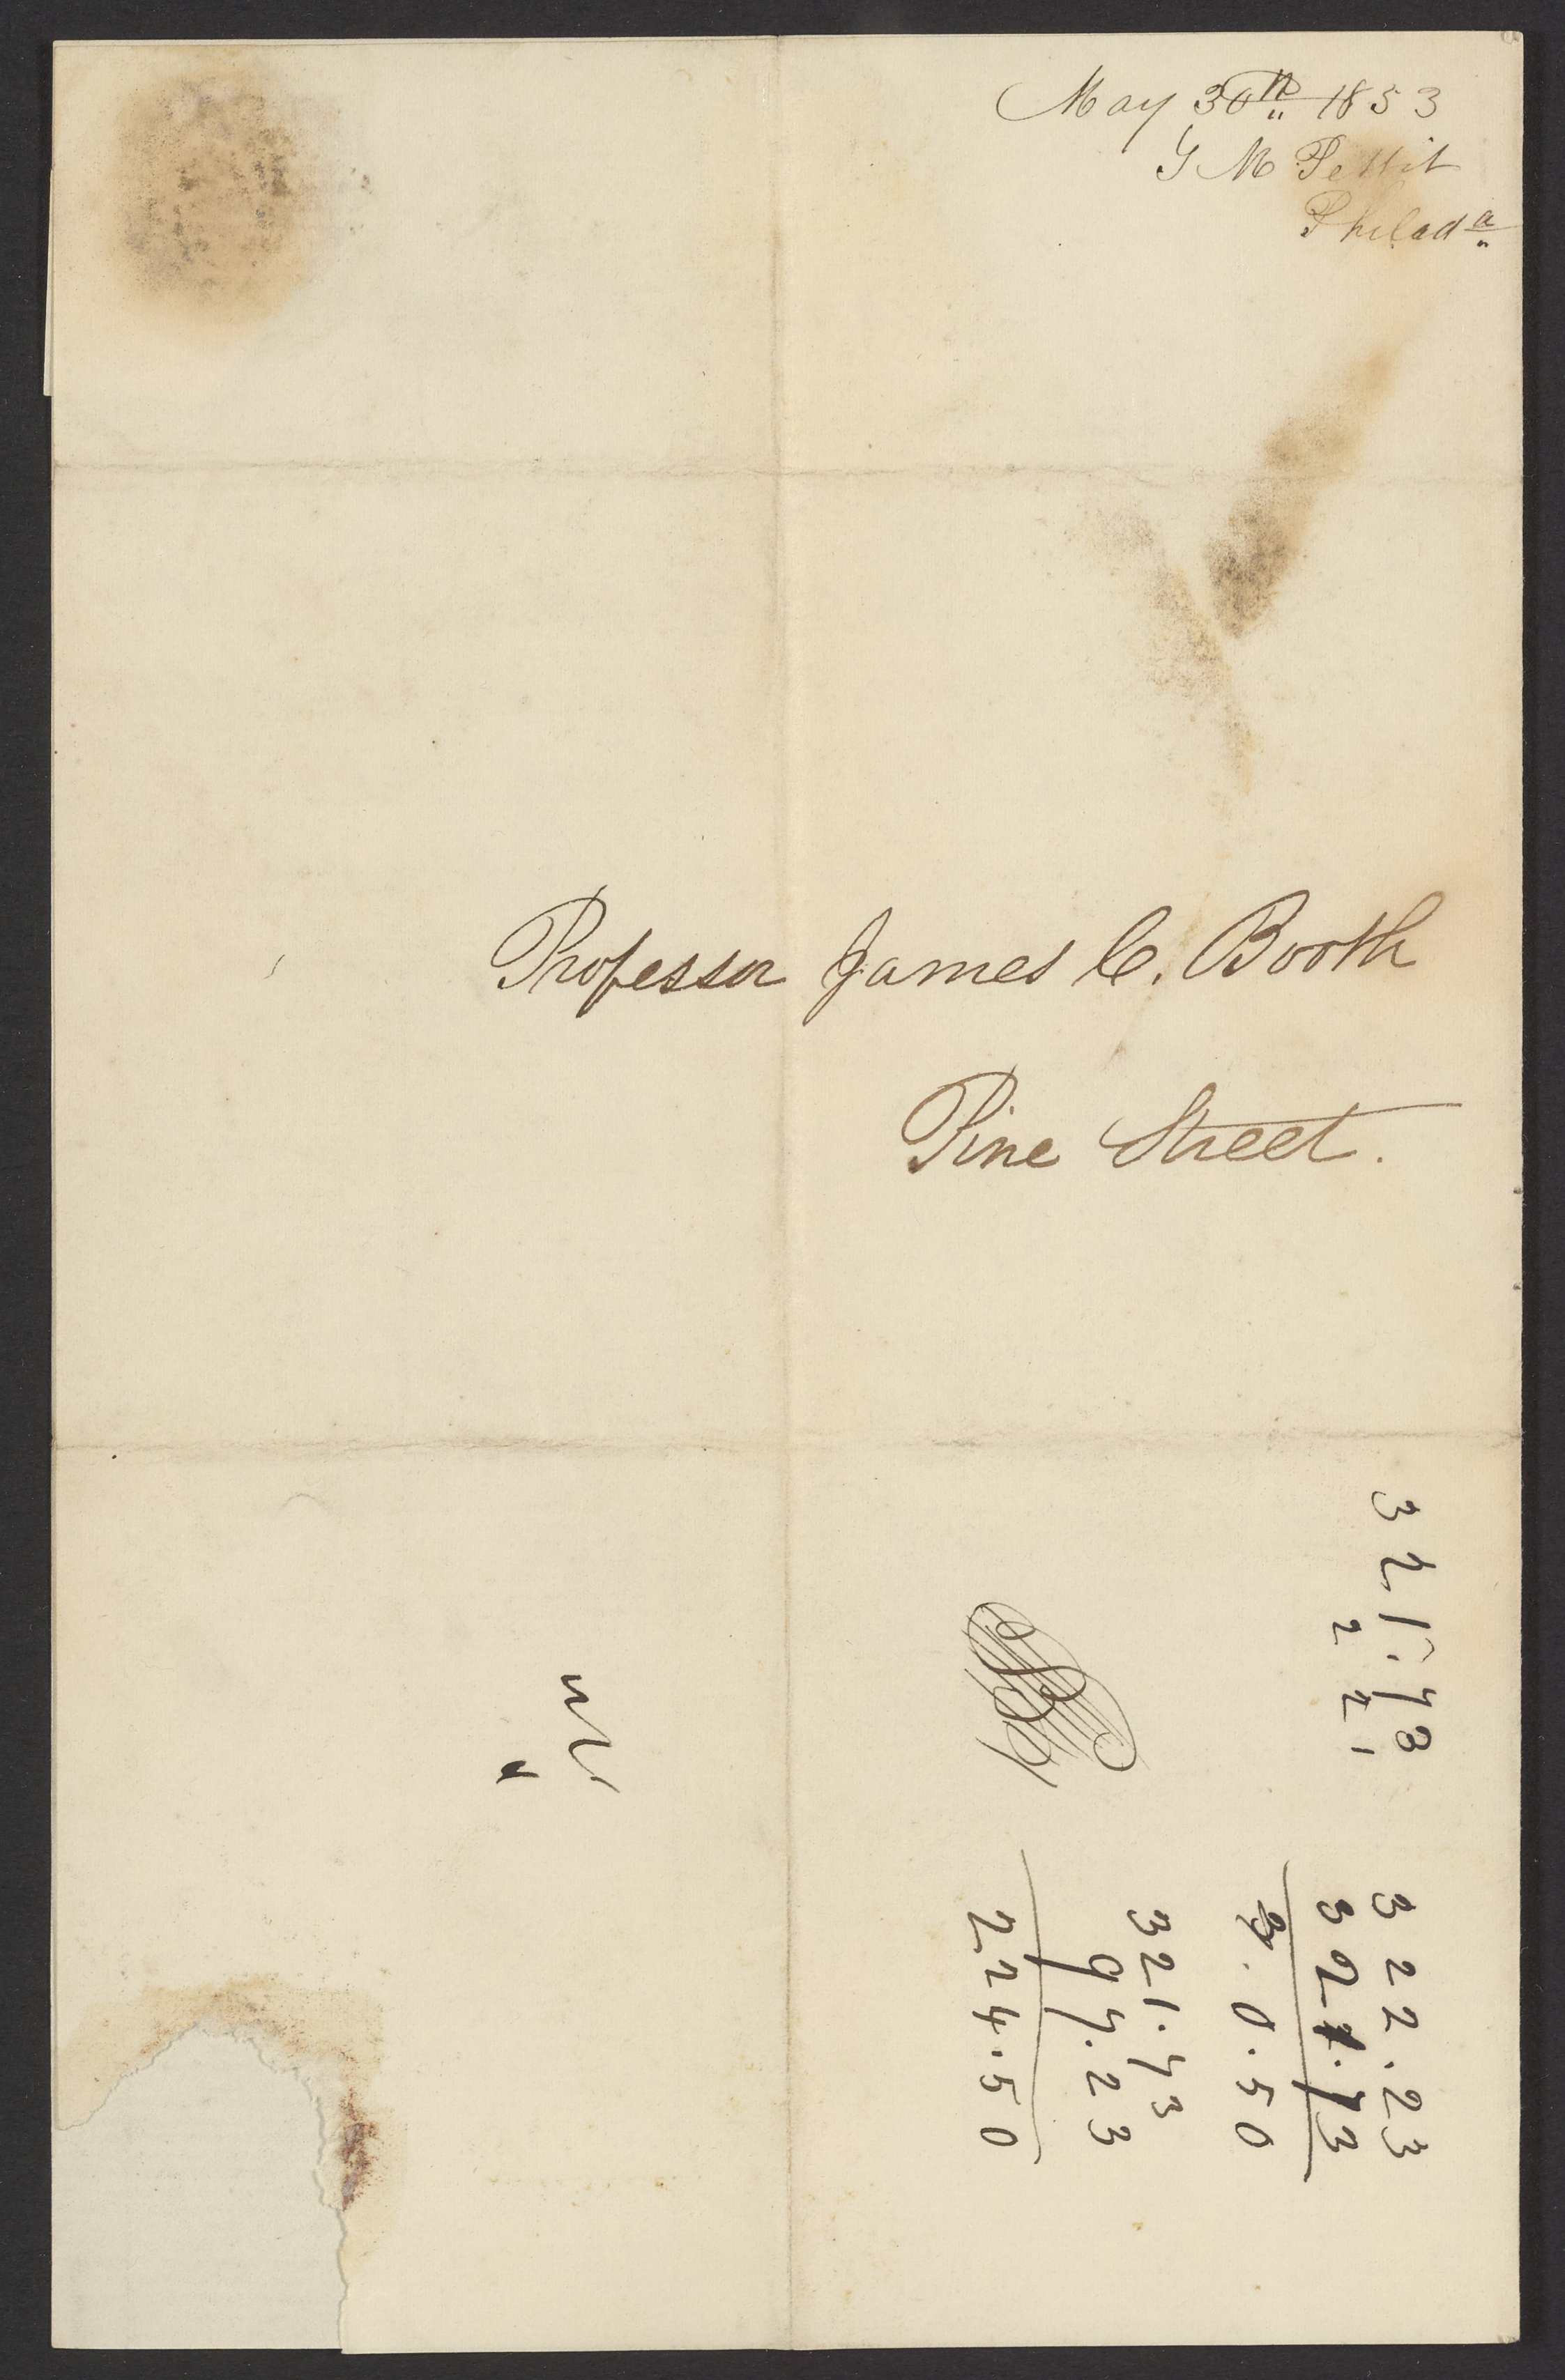 May 30th 1853
G M Pettit
Philada
Professor James C. Booth
Pine Street.
321.73
221
322.23
321.73
0.50
321.73
97.23
224.50